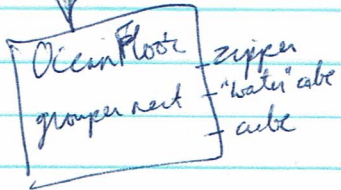 Ocean Floor
grouper nest
- zipper
- "water" cube
- cube